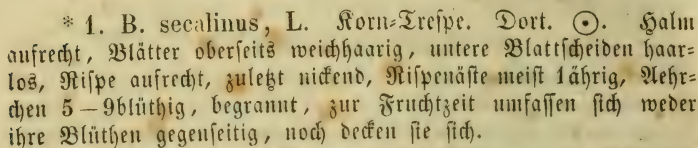 * 1. B. secalinus, L. Korn-Trespe. Dort. ☉. Halm
aufrecht, Blätter oberseits weichhaarig, untere Blattscheiden haar-
los, Rispe aufrecht, zuletzt nickend, Rispenäste meist 1ährig, Aehr-
chen 5–9blüthig, begrannt, zur Fruchtzeit umfassen sich weder
ihre Blüthen gegenseitig, noch decken sie sich.